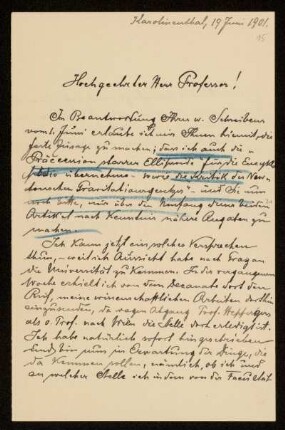 Karolinenthal, 19 Juni 1901.
Hochgeehrter Herr Professor!
In Beantwortung Ihres w. Schreibens
vom 1. Juni erlaube ich mir Ihnen hiemit, die
feste Zusage zu machen, dass ich auch die
Präcession starrer Ellipsoide für die Encykl
opädie übernehme sowie die Kritik des New-
tonschen Gravitationsgesetzes – und Sie nun
noch bitte, mir über den Umfang eines
Artikels nach Kenntnis nähere Angaben zu
machen.
Ich kann jetzt ein solches Versprechen
thun, weil ich Aussicht habe nach Prag an
die Universität zu kommen. In der vergangenen
Woche erhielt ich von dem Decanate dort den
Ruf, meine wissenschaftlichen Arbeiten dorthin
einzusenden, da wegen Abgang Prof. Hepperger
als o. Prof. nach Wien die Stelle dort erledigt ist.
Ich habe natürlich sofort hingeschrieben
und bin nun in Erwartung der Dinge, die
da kommen sollen, nämlich, ob ich und
an welcher Stelle ich in den von der Facultät